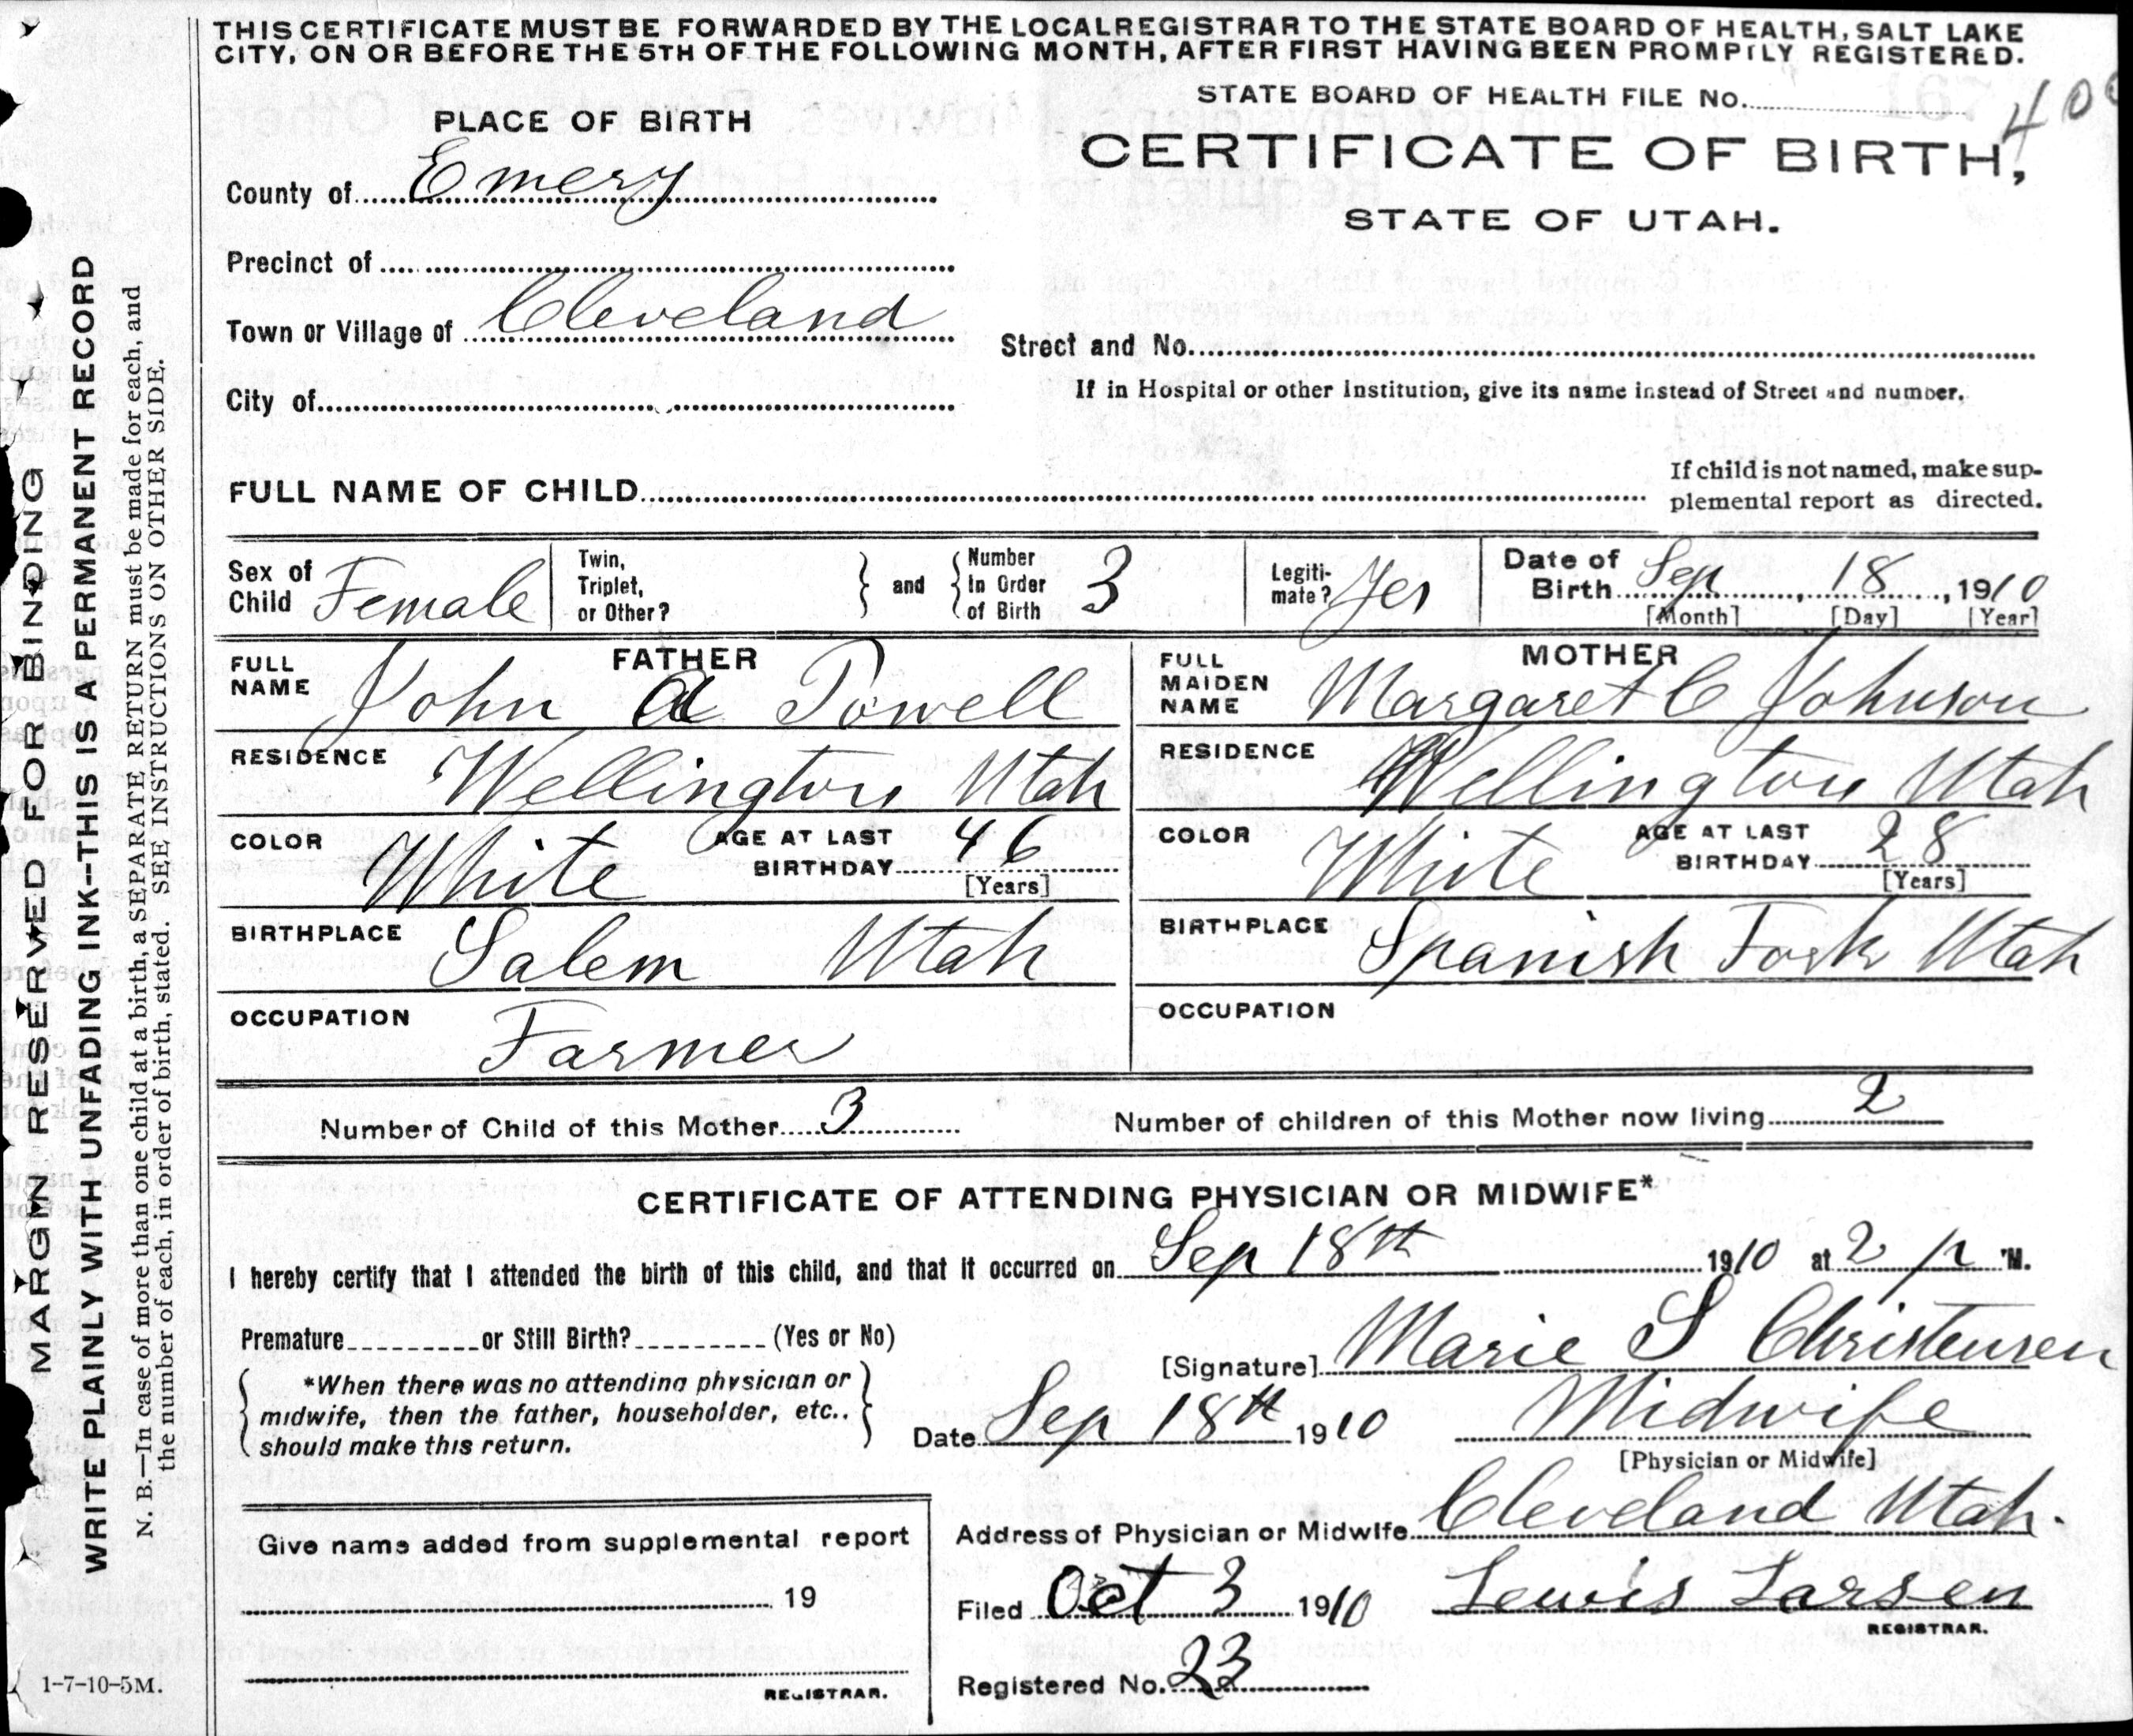 THIS CERTIFICATE MUST BE FORWARDED BY THE LOCAL REGISTRAR TO THE STATE BOARD OF HEALTH, SALT LAKE
CITY, ON OR BEFORE THE 5TH OF THE FOLLOWING MONTH, AFTER FIRST HAVING BEEN PROMPTLY REGISTERED.
STATE BOARD OF HEALTH FILE No.
PLACE OF BIRTH
CERTIFICATE OF BIRTH,
STATE OF UTAH.
County of Emery
Precinct of
Town or Village of Cleveland
Street and No.
City of
If in Hospital or other Institution, give its name instead of Street and number.
FULL NAME OF CHILD
If child is not named, make sup-
plemental report as directed.
Sex of Child Female
Twin, Triplet, or Other? } and { Number In Order of Birth 3
Legiti-mate? Yes
Date of Birth Sep 18, 1910
[Month] [Day] [Year]
FATHER
FULL NAME John A Powell
RESIDENCE Wellington Utah
COLOR White AGE AT LAST BIRTHDAY 46
[Years]
BIRTHPLACE Salem Utah
OCCUPATION Farmer
MOTHER
FULL MAIDEN NAME Margaret C Johnson
RESIDENCE Wellington Utah
COLOR White AGE AT LAST BIRTHDAY 28
[Years]
BIRTHPLACE Spanish Fork Utah
OCCUPATION
Number of Child of this Mother 3 Number of children of this Mother now living 2
CERTIFICATE OF ATTENDING PHYSICIAN OR MIDWIFE*
I hereby certify that I attended the birth of this child, and that it occurred on Sep 18th 1910 at 2 p M.
Premature or Still Birth? (Yes or No)
[Signature] Marie S Christensen
*When there was no attending physician or
midwife, then the father, householder, etc.,
should make this return.
Date Sep 18th 1910 Midwife
[Physician or Midwife]
Give name added from supplemental report
19
REGISTRAR.
Address of Physician or Midwife Cleveland Utah.
Filed Oct 3 1910 Lewis Larsen
REGISTRAR.
Registered No. 23
1-7-10-5M.
MARGIN RESERVED FOR BINDING
WRITE PLAINLY WITH UNFADING INK--THIS IS A PERMANENT RECORD
N. B.—In case of more than one child at a birth, a SEPARATE RETURN must be made for each, and
the number of each, in order of birth, stated. SEE INSTRUCTIONS ON OTHER SIDE.